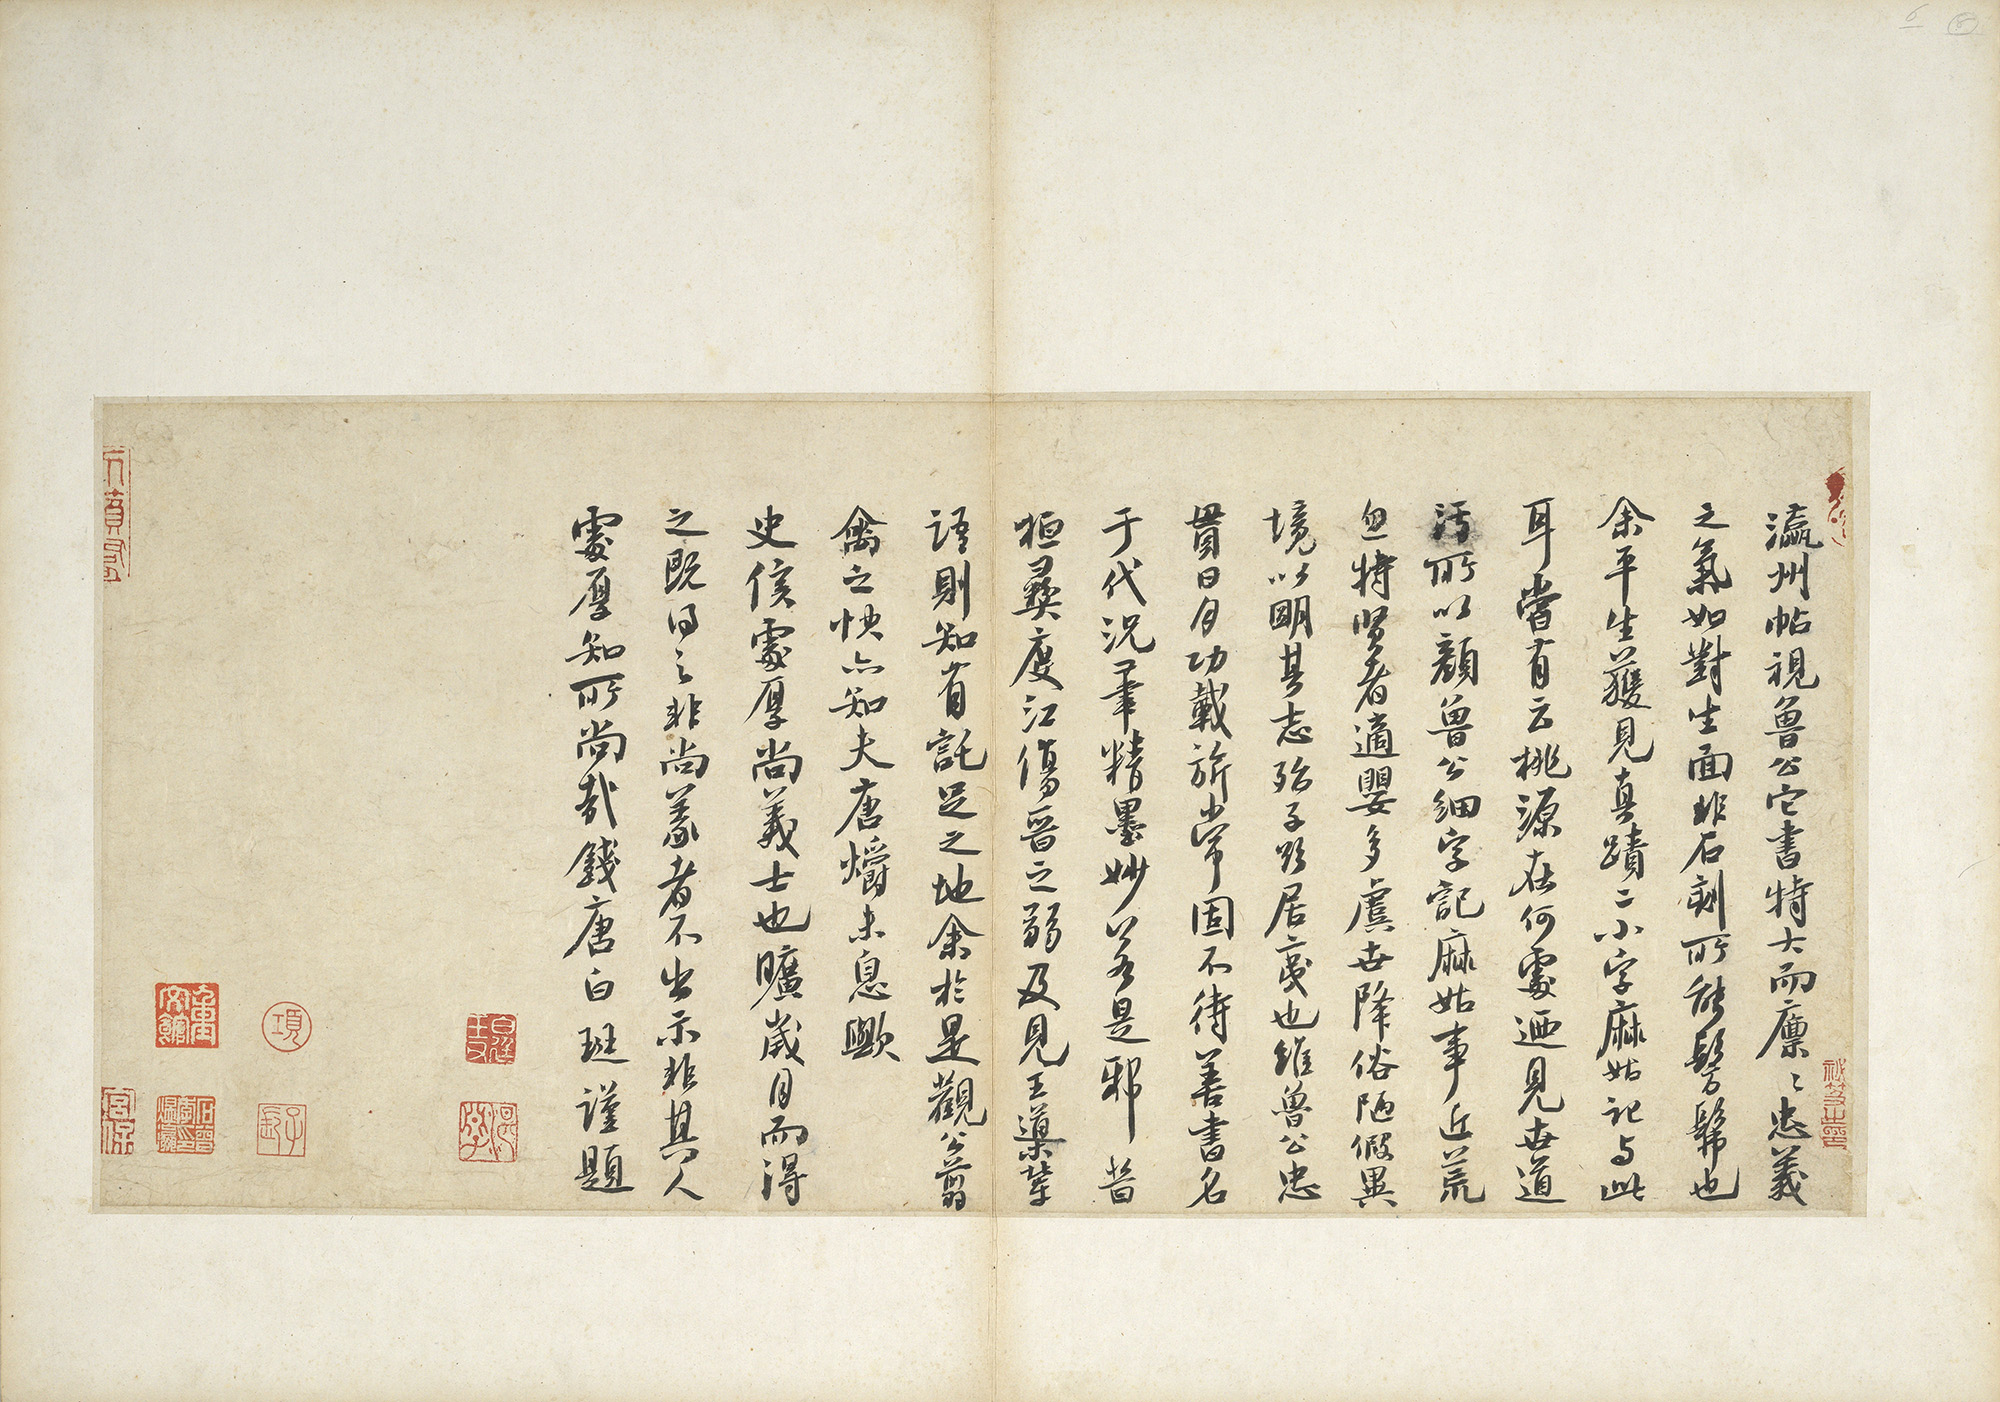 瀛州帖視魯公它書特大而廩〻忠義
之氣如對生面非石刻所能髣髴也
余平生獲見真蹟二小字麻姑記与此
耳嘗有云桃源在何處迺見世道
污所以顏魯公細字記麻姑事近荒
忽特賢者適嬰多虞世降俗陋假異
境以明其志殆子欲居之意也雖魯公忠
貫日月功載旂常固不待善書名
于代況筆精墨妙又若是邪昔
桓彝度江傷晉之弱及見王導辈
語則知有託足之地余於是觀公翦
禽之快亦知夫唐爝未息歟
史侯處厚尚義士也曠歲月而得
之既得之非尚義者不出示非其人
處厚知所尚哉錢唐白珽謹題
項
子長
宮保
白珽玉父
湛淵